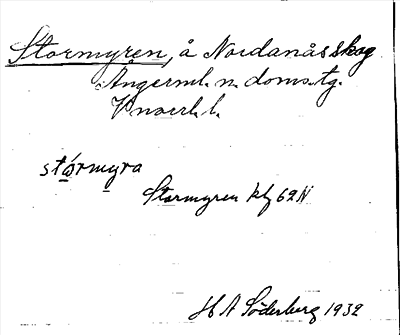 Stormyren, å Nordanåsskog
Ångerml. n. doms.tg.
stórmyra
Stormyren kbl 62 N
H A Söderberg 1932